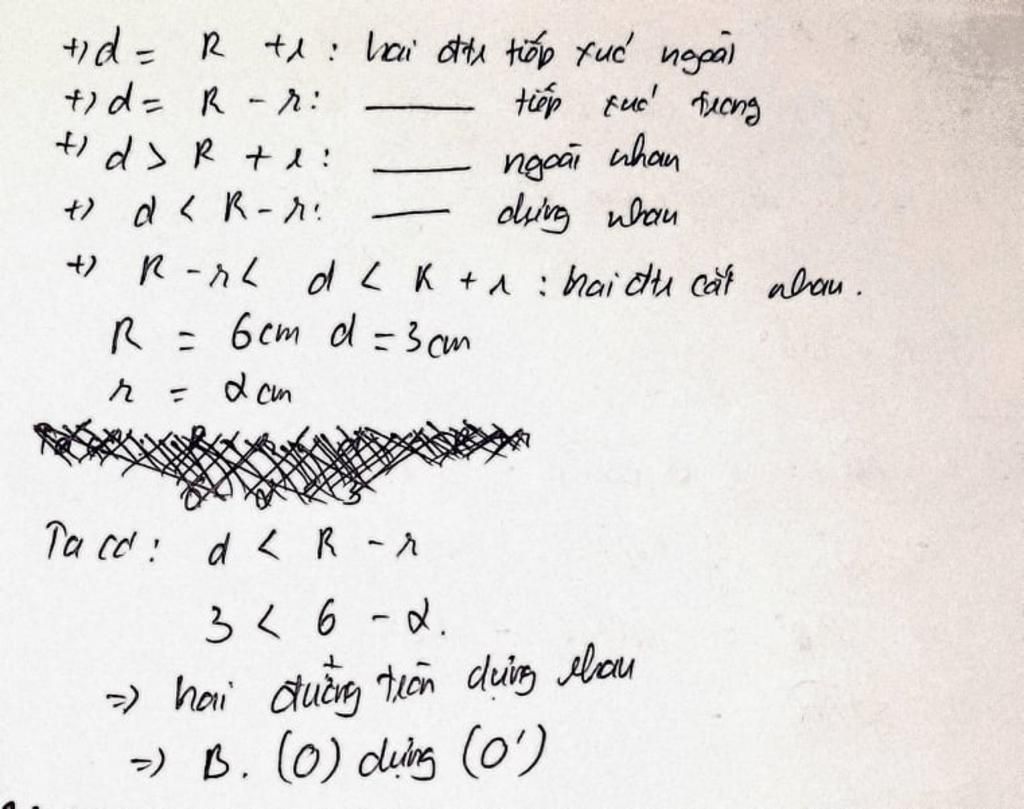 +) d = R + r : hai đtr tiếp xúc ngoài
+) d = R - r : —— tiếp xúc trong
+) d > R + r : —— ngoài nhau
+) d < R - r : —— đựng nhau
+) R - r < d < R + r : hai đtr cắt nhau.
R = 6cm d = 3cm
r = 2cm
Ta có : d < R - r
3 < 6 - 2.
=> hai đường tròn đựng nhau
=> B. (O) đựng (O')